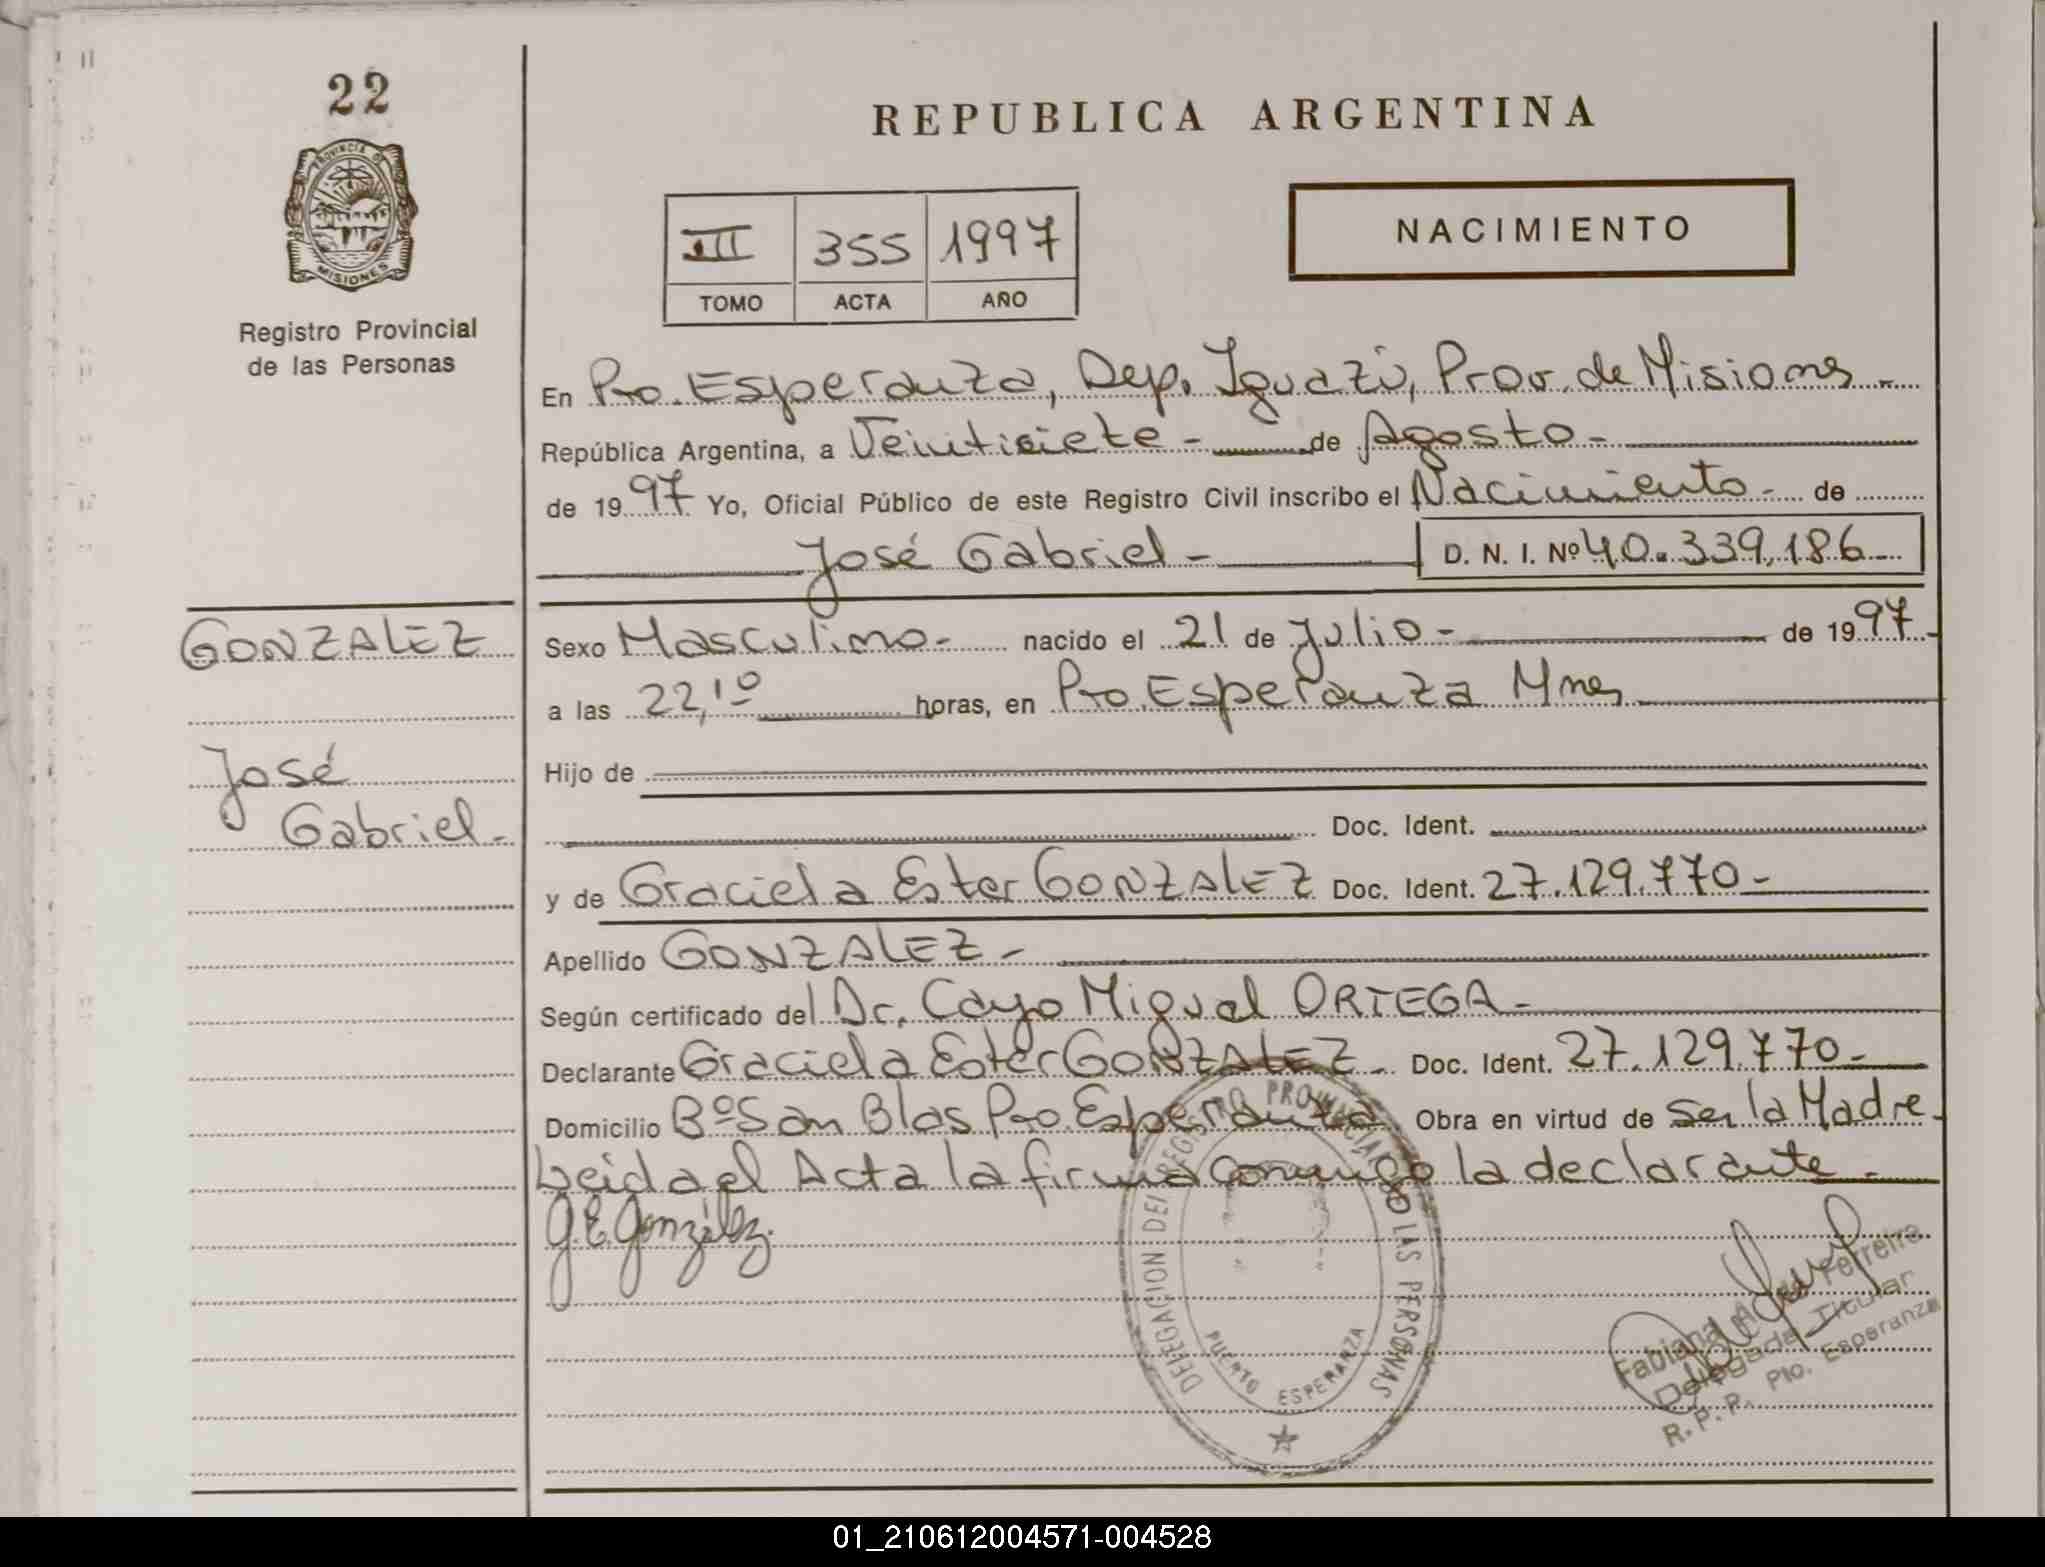 22
PROVINCIA DE
MISIONES
Registro Provincial
de las Personas
REPUBLICA ARGENTINA
III 355 1997
TOMO ACTA AÑO
NACIMIENTO
En Pto. Esperanza, Dep. Iguazú, Prov. de Misiones -
República Argentina, a Veintisiete - de Agosto -
de 1997 Yo, Oficial Público de este Registro Civil inscribo el Nacimiento - de
José Gabriel - D. N. I. Nº 40.339.186
GONZALEZ
José
Gabriel -
Sexo Masculino - nacido el 21 de Julio - de 1997 -
a las 22,10 horas, en Pto. Esperanza Mnes
Hijo de
Doc. Ident.
y de Graciela Ester GONZALEZ Doc. Ident. 27.129.770 -
Apellido GONZALEZ -
Según certificado del Dr. Cayo Miguel ORTEGA -
Declarante Graciela Ester GONZALEZ - Doc. Ident. 27.129.770 -
Domicilio Bº San Blas Pto. Esperanza. Obra en virtud de ser la Madre -
Leida el Acta la firma conmigo la declarante -
G.E. González.
DELEGACION DEL REGISTRO PROVINCIAL DE LAS PERSONAS
PUERTO ESPERANZA
Fabiana A. de Ferreira
Delegada Titular
R. P. P. Pto. Esperanza
01_210612004571-004528